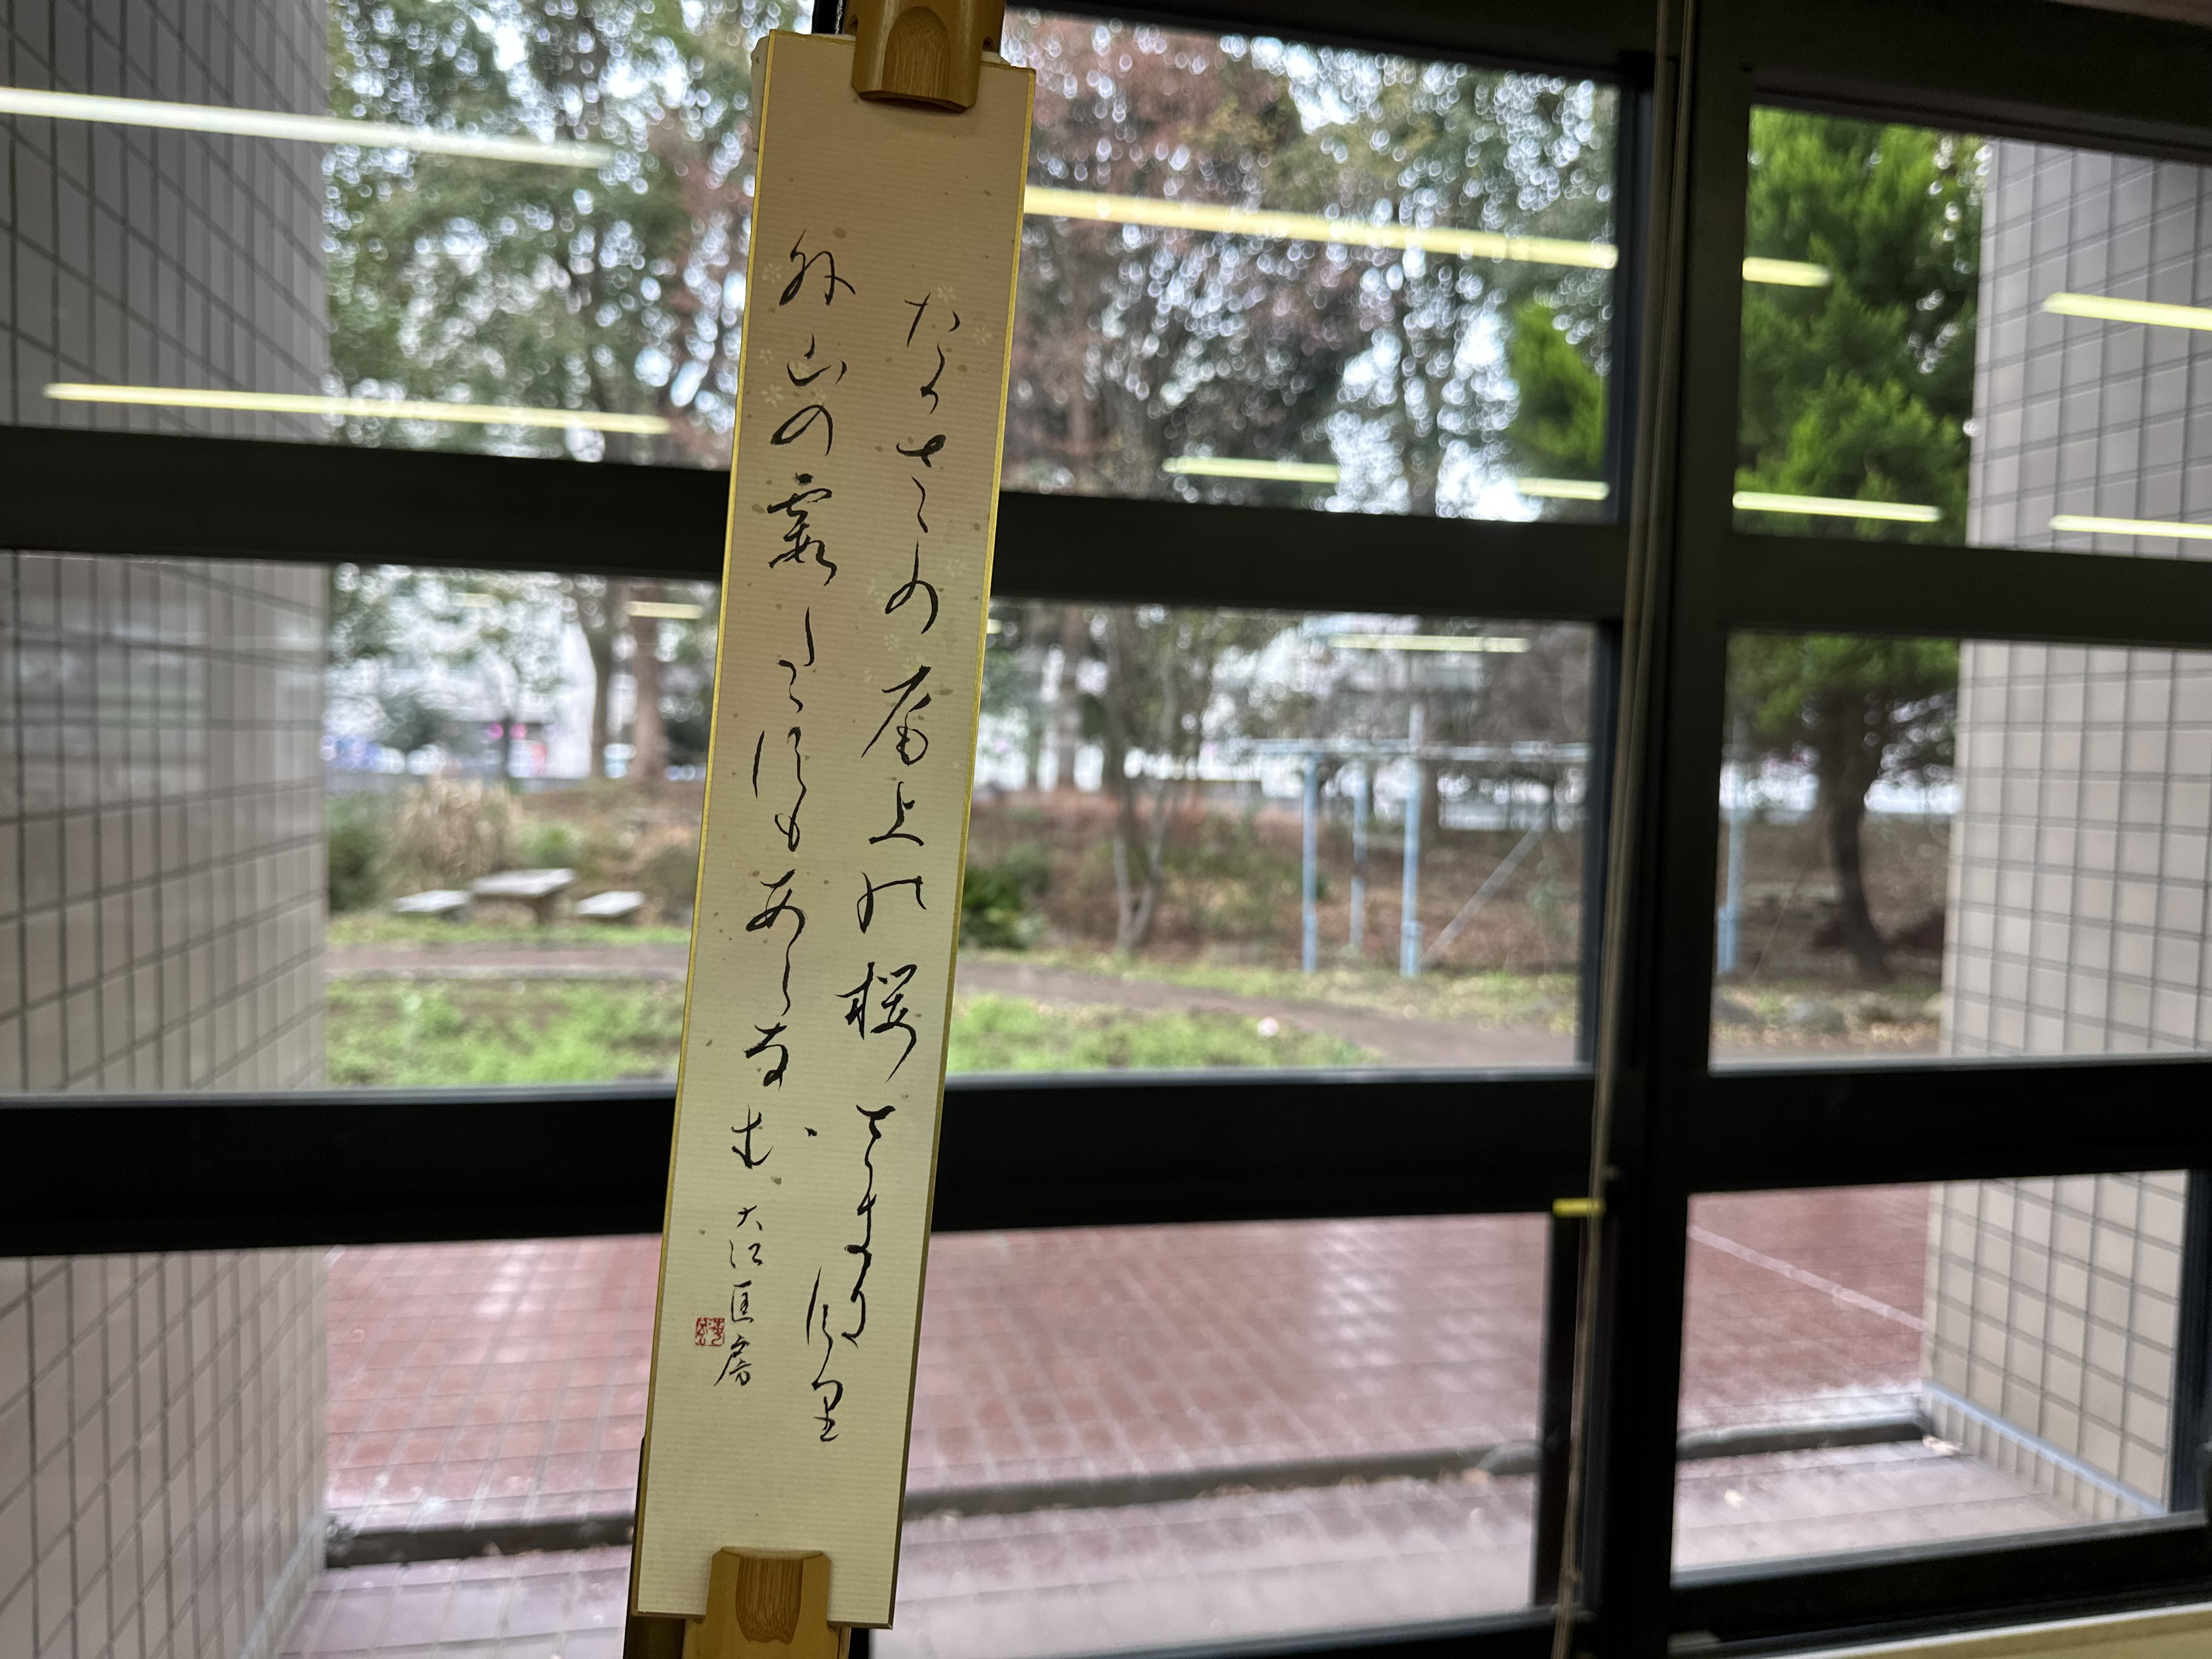 たかさこの尾上の桜さきにけり
外山の霞たゝすもあらなむ
大江匡房